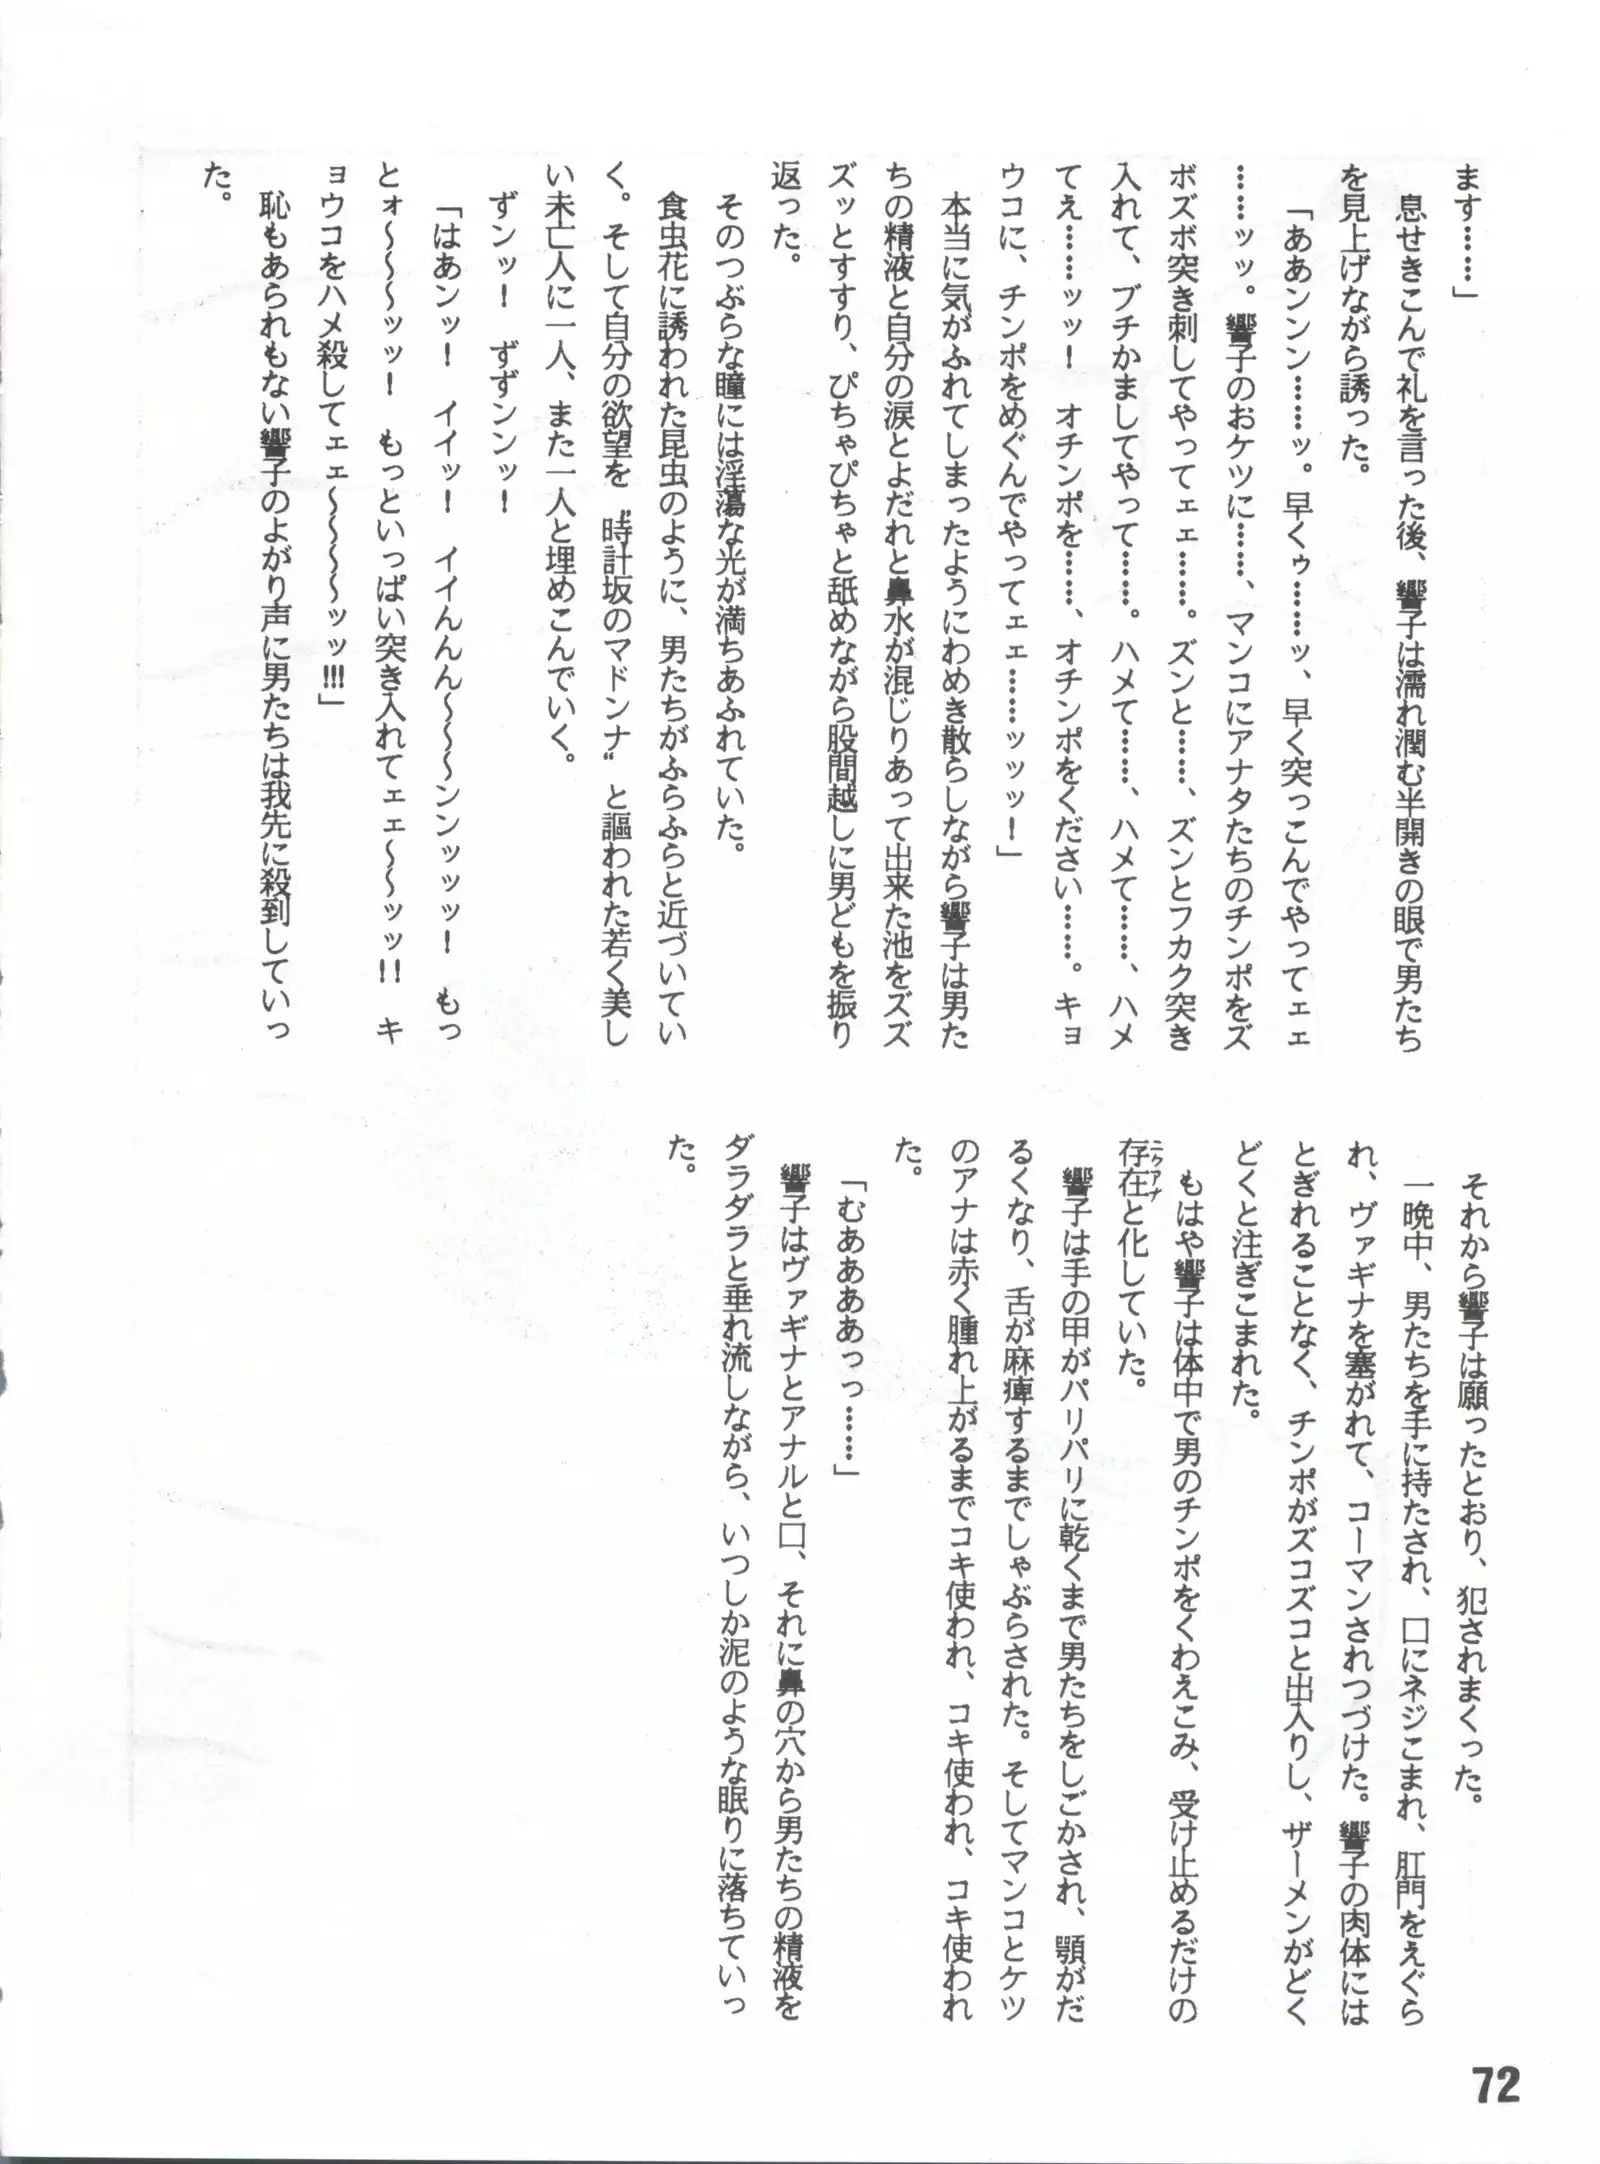 ます……」
　息せきこんで礼を言った後、響子は濡れ潤む半開きの眼で男たち
を見上げながら誘った。
「ああンンン……ッ。早くゥ……ッ、早く突っこんでやってェェ
……ッッ。響子のおケツに……、マンコにアナタたちのチンポをズ
ボズボ突き刺してやってェェ……。ズンと……、ズンとフカク突き
入れて、ブチかましてやって……。ハメて……、ハメて……、ハメ
てえ……ッッ！　オチンポを……、オチンポをください……。キョ
ウコに、チンポをめぐんでやってェェ……ッッッ！」
　本当に気がふれてしまったようにわめき散らしながら響子は男た
ちの精液と自分の涙とよだれと鼻水が混じりあって出来た池をズズ
ズッとすすり、ぴちゃぴちゃと舐めながら股間越しに男どもを振り
返った。
　そのつぶらな瞳には淫蕩な光が満ちあふれていた。
　食虫花に誘われた昆虫のように、男たちがふらふらと近づいてい
く。そして自分の欲望を〝時計坂のマドンナ〟と謳われた若く美し
い未亡人に一人、また一人と埋めこんでいく。
　ずンッ！　ずずンンッ！
「はあンッ！　イイッ！　イイんんん～～～ンンッッッ！　もっ
とォ～～～～ッッ！　もっといっぱい突き入れてェェ～～ッッ!!　キ
ョウコをハメ殺してェェ～～～～～ッッ!!!」
　恥もあられもない響子のよがり声に男たちは我先に殺到していっ
た。
　それから響子は願ったとおり、犯されまくった。
　一晩中、男たちを手に持たされ、口にネジこまれ、肛門をえぐら
れ、ヴァギナを塞がれて、コーマンされつづけた。響子の肉体には
とぎれることなく、チンポがズコズコと出入りし、ザーメンがどく
どくと注ぎこまれた。
　もはや響子は体中で男のチンポをくわえこみ、受け止めるだけの
ニクアナ
存在と化していた。
　響子は手の甲がパリパリに乾くまで男たちをしごかされ、顎がだ
るくなり、舌が麻痺するまでしゃぶらされた。そしてマンコとケツ
のアナは赤く腫れ上がるまでコキ使われ、コキ使われ、コキ使われ
た。
「むああああっっ……」
　響子はヴァギナとアナルと口、それに鼻の穴から男たちの精液を
ダラダラと垂れ流しながら、いつしか泥のような眠りに落ちていっ
た。
72